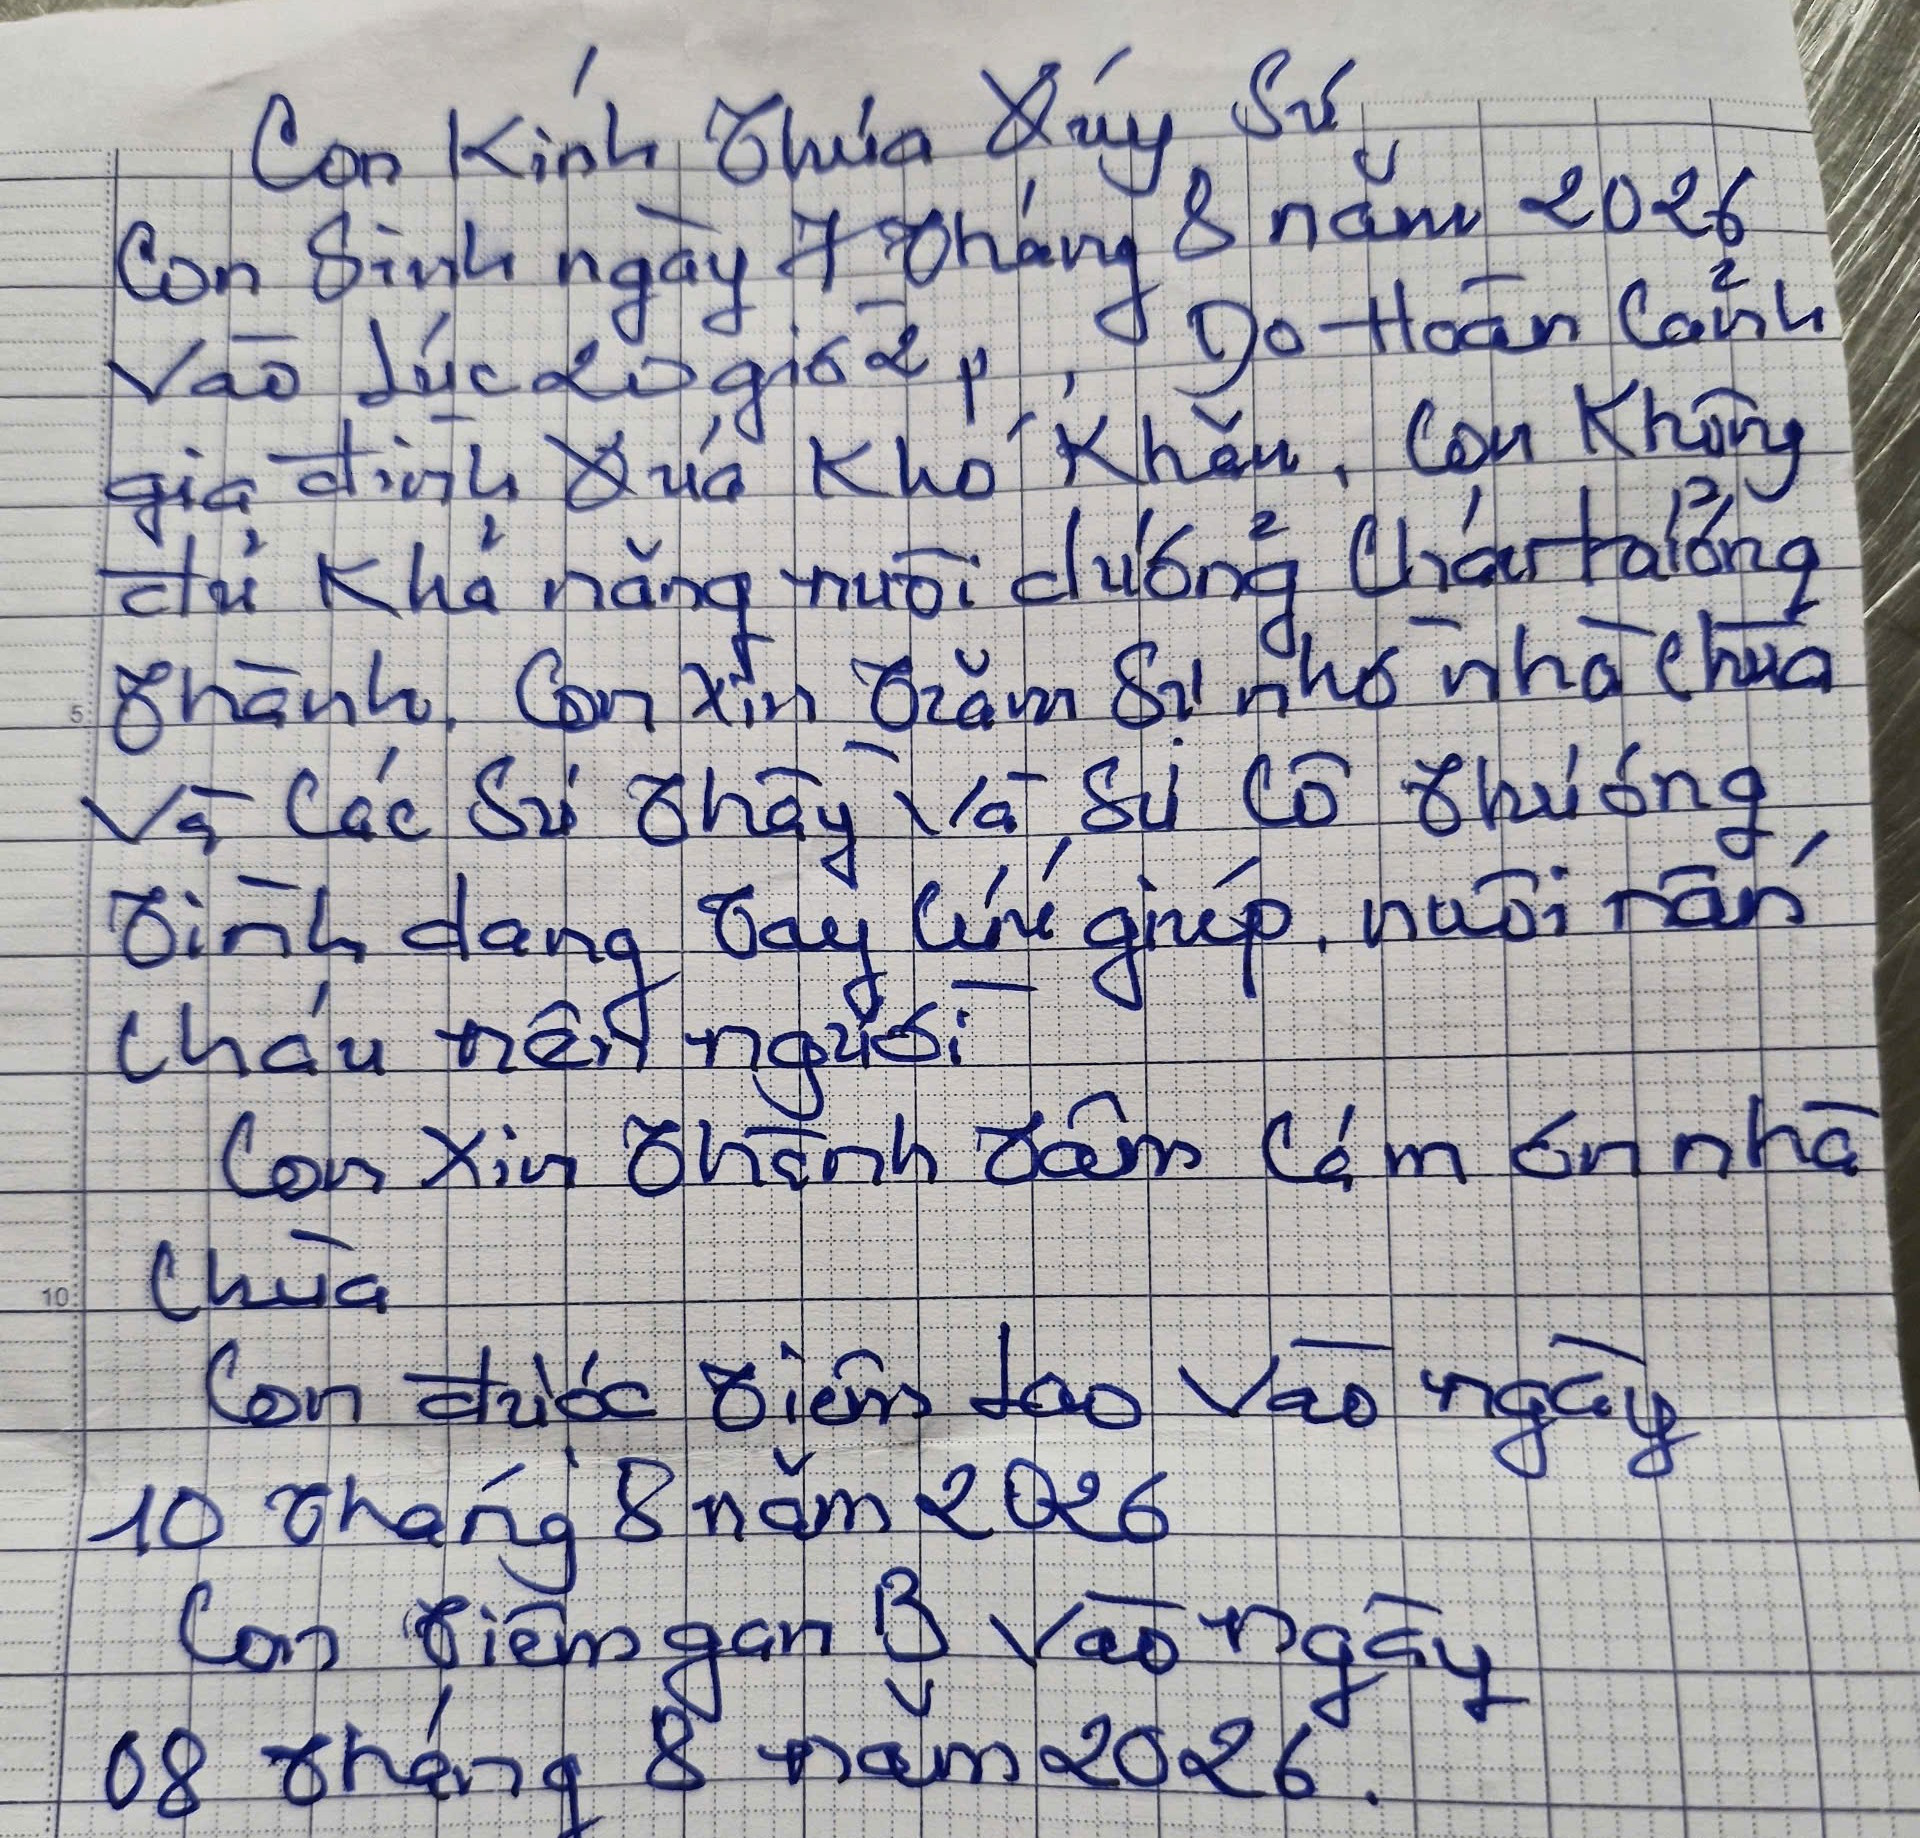 Con Kính Thưa Qúy Sư
Con Sinh ngày 7 tháng 8 năm 2026
Vào lúc 20 giờ 2 p, Do Hoàn Cảnh
gia đình Quá Khó Khăn, Con Không
đủ Khả năng nuôi dưỡng Cháu trưởng
Thành, Con xin Trăm Sự nhờ nhà Chùa
Và Các Sư Thầy Và Sư Cô Thương
Tình dang Tay Cứu giúp, nuôi nấn
Cháu nên người
Con Xin Thành Tâm Cám ơn nhà
Chùa
Con được Tiêm Lao Vào ngày
10 tháng 8 năm 2026
Con Tiêm gan B Vào ngày
08 tháng 8 năm 2026.
5
10